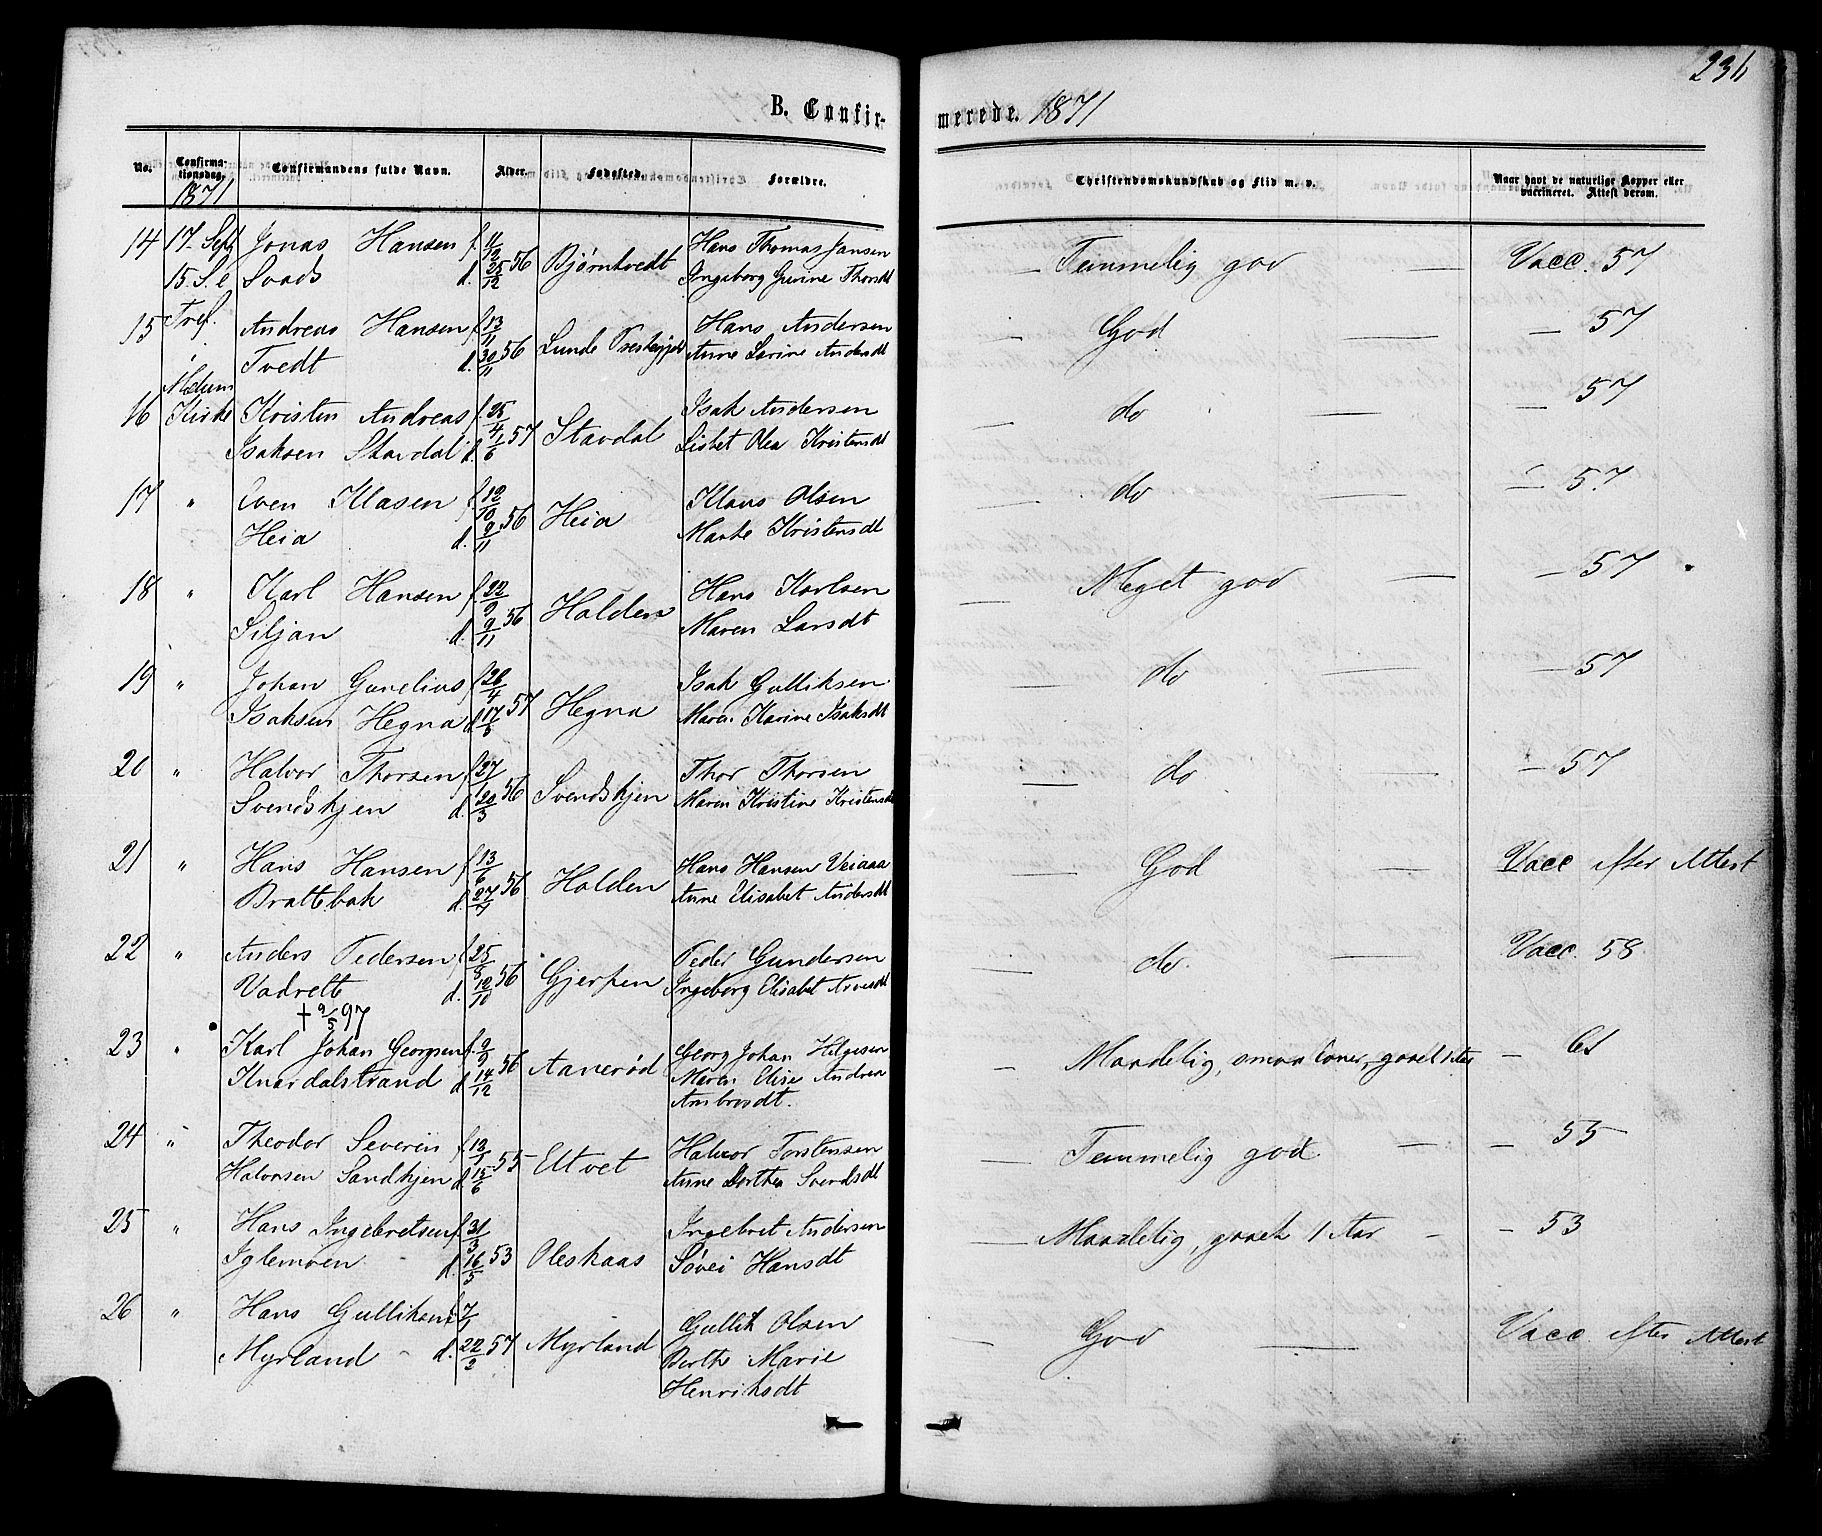 236
B. Confirmerede. 1871
No. Confirmationsdag. Confirmandens fulde Navn. Alder. Fødested. Forældre. Christendomskundskab og Flid m. v. Naar havt de naturlige Kopper eller vaccineret. Attest derom.
1871
14 17 Sept Jonas Hansen f. 11/12 Hans Thomas Jansen
15 S. e Svads d. 25/12 56 Bjørntvedt Ingeborg Gurine Thorsdt — Temmelig god — Vacc. 57
15 Tref. Andreas Hansen f. 13/11 Hans Andersen
Tvedt d. 30/11 56 Lunde Anne Larine Andersdt — God — — 57
Melum
16 Kirke Kristen Andreas f. 25/4 Isak Andersen
Isaksen Stavdal d. 1/6 57 Stavdal Lisbet Olea Kristensdt — do — — 57
17 " Even Klasen f. 12/10 Klaus Olsen
Heia d. 9/11 56 Heia Marte Kristensdt — do — — 57
18 " Karl Hansen f. 22/9 Hans Karlsen
Siljan d. 9/11 56 Holden Maren Larsdt — Meget god — — 57
19 " Johan Gunelius f. 26/4 Isak Gulliksen
Isaksen Hegna d. 17/5 57 Hegna Maren Karine Isaksdt — do — — 57
20 " Halvor Thorsen f. 27/1 Thor Thorsen
Svendskjen d. 20/3 56 Svendskjen Maren Kristine Kristensdt — do — — 57
21 " Hans Hansen f. 13/6 Hans Hansen Veiaaa
Brattebak d. 27/7 56 Holden Anne Elisabet Andersdt — God — Vacc efter Attest
22 " Anders Pedersen f. 25/8 Peder Gundersen
Vadrett d. 12/10 56 Gjerpen Ingeborg Elisabet — do. — Vacc. 58
† 9/5 97
23 " Karl Johan Georgsen f. 9/9 Georg Johan Helgesen
Knardalstrand d. 14/12 56 Aanerød Maren Elise Andrea — Maadelig, smaa Evner, gaaet 1 Aar — 61
24 " Theodor Severin f. 12/1 Halvor Torstensen
Halvorsen Sandkjen d. 15/6 55 Eltvet Anne Dorthea Svendsdt — Temmelig god — — 55
25 " Hans Ingebretsen f. 31/3 Ingebret Andersen
Iglemoen d. 16/5 53 Oleskaas Søvei Hansdt — Maadelig, gaaet 1 Aar — — 53
26 " Hans Gulliksen f. 7/1 Gullik Olsen
Myrland d. 22/2 57 Myrland Berthe Marie — God — Vacc efter Attest
Henriksdt